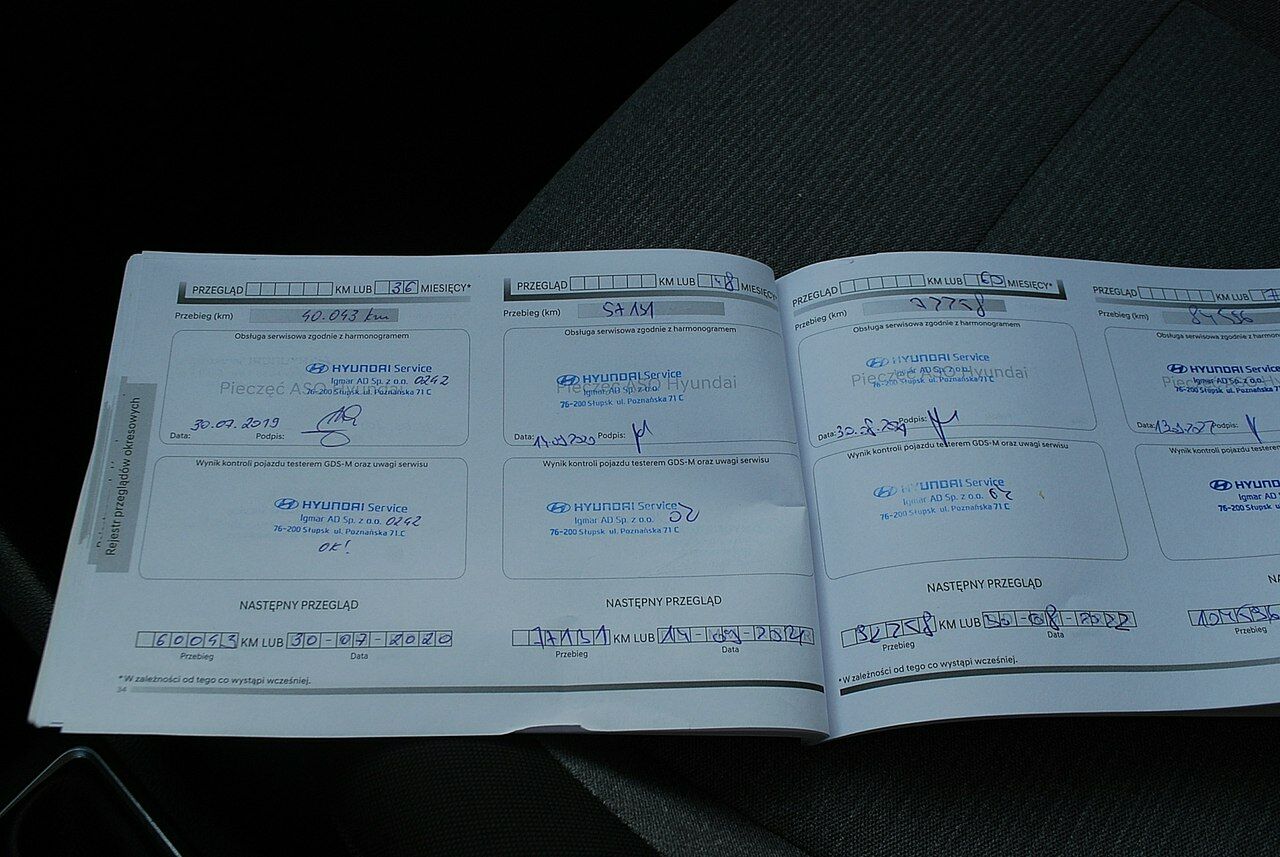 PRZEGLĄD KM LUB 36 MIESIĘCY*
Przebieg (km) 40.043 km
Obsługa serwisowa zgodnie z harmonogramem
HYUNDAI Service
Igmar AD Sp. z o.o. 0242
Pieczęć ASO Hyundai
76-200 Słupsk ul. Poznańska 71 C
30.07.2019
Data: Podpis:
Wynik kontroli pojazdu testerem GDS-M oraz uwagi serwisu
HYUNDAI Service
Igmar AD Sp. z o.o. 0242
76-200 Słupsk ul. Poznańska 71 C
OK!
NASTĘPNY PRZEGLĄD
60043 KM LUB 30-07-2020
Przebieg Data
*W zależności od tego co wystąpi wcześniej.
34
Rejestr przeglądów okresowych
PRZEGLĄD KM LUB 48 MIESIĘCY*
Przebieg (km) 57151
Obsługa serwisowa zgodnie z harmonogramem
HYUNDAI Service
Pieczęć ASO Hyundai
Igmar AD Sp. z o.o.
76-200 Słupsk ul. Poznańska 71 C
Data: 14.09.2020 Podpis:
Wynik kontroli pojazdu testerem GDS-M oraz uwagi serwisu
HYUNDAI Service
Igmar AD Sp. z o.o.
76-200 Słupsk ul. Poznańska 71 C
NASTĘPNY PRZEGLĄD
77151 KM LUB 14-09-2021
Przebieg Data
PRZEGLĄD KM LUB 60 MIESIĘCY*
Przebieg (km) 77758
Obsługa serwisowa zgodnie z harmonogramem
HYUNDAI Service
Igmar AD Sp. z o.o.
Pieczęć ASO Hyundai
76-200 Słupsk ul. Poznańska 71 C
Data: 30.08.2021 Podpis:
Wynik kontroli pojazdu testerem GDS-M oraz uwagi serwisu
HYUNDAI Service
Igmar AD Sp. z o.o.
76-200 Słupsk ul. Poznańska 71 C
NASTĘPNY PRZEGLĄD
KM LUB 30-08-2022
Przebieg Data
*W zależności od tego co wystąpi wcześniej.
PRZEGLĄD KM LUB 7
Przebieg (km) 84596
Obsługa serwisowa zgodnie z
HYUNDAI
Igmar AD Sp. z o.o.
76-200 Słupsk ul. Poznańska
Data: Podpis:
Wynik kontroli pojazdu
HYUNDAI
Igmar AD Sp.
76-200 Słupsk ul.
104596
Przebieg